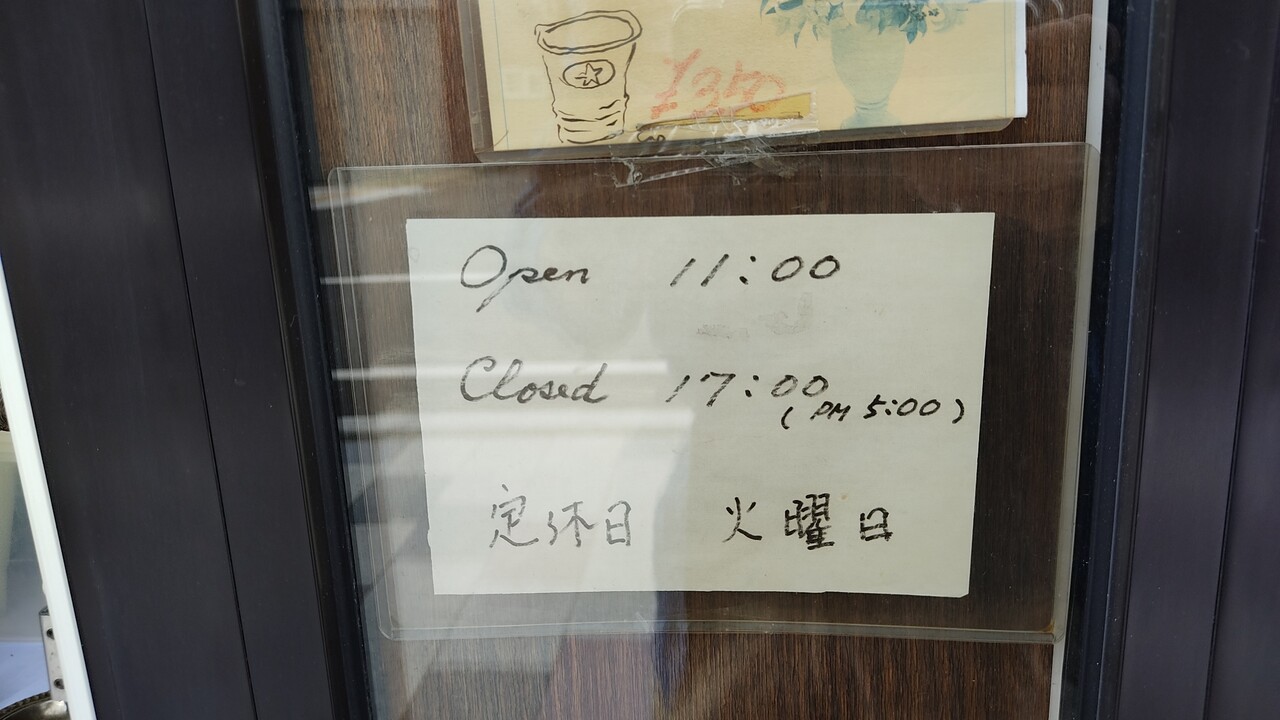 ¥350
Open 11:00
Closed 17:00
( PM 5:00 )
定休日 火曜日